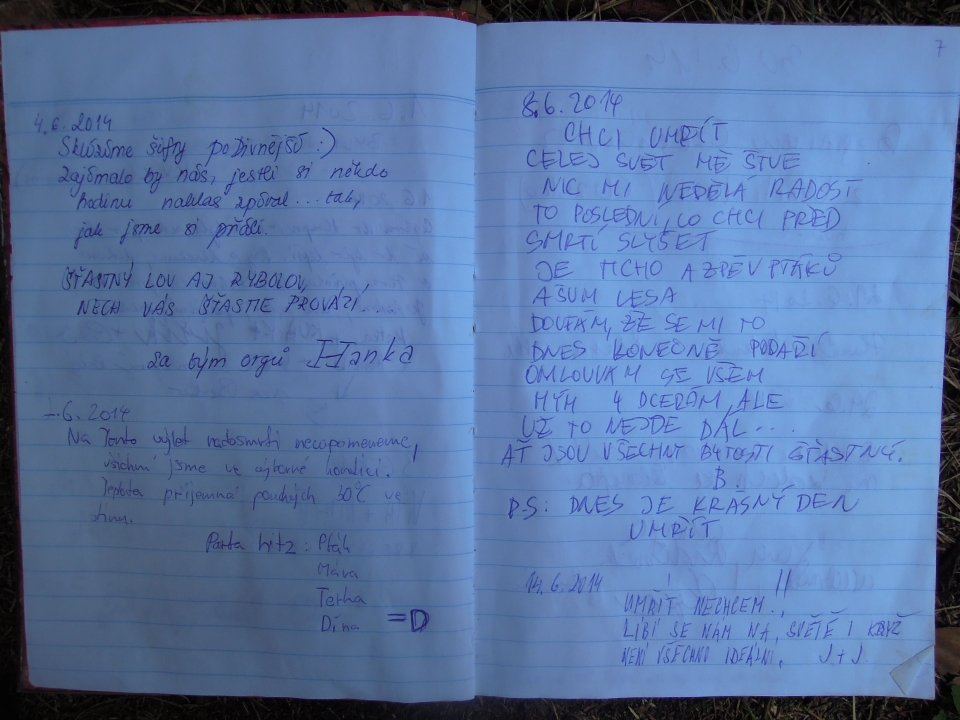 4.6.2014
Zkusíme šifry podivnější :)
Zajímalo by nás, jestli si někdo
hodinu nahlas zpíval... tak,
jak jsme si přáli.
ŠŤASTNÝ LOV AJ RYBOLOV,
NECH VÁS ŠŤASTIE PROVÁZÍ.
Za tým orgů Hanka
.6.2014
Na tento výlet nadosmrti nezapomeneme,
všichni jsme ve výborné kondici.
Teplota příjemná pouhých 30°C ve
stínu.
Parta hitz: Pták
Máva
Terka
Dína =D
7
8.6.2014
CHCI UMŘÍT
CELEJ SVET MĚ ŠTVE
NIC MI NEDĚLÁ RADOST
TO POSLEDNÍ, CO CHCI PŘED
SMRTÍ SLYŠET
JE HCHO A ZPĚV PTÁKŮ
A ŠUM LESA
DOUFÁM, ŽE SE MI TO
DNES KONEČNĚ PODAŘÍ
OMLOUVÁM SE VŠEM
MÝM 4 DCERÁM, ALE
UŽ TO NEJDE DÁL...
AŤ JSOU VŠECHNY BYTOSTI ŠŤASTNÝ.
B.
P.S: DNES JE KRÁSNÝ DEN
UMŘÍT
14.6.2014
UMŘÍT NECHCEM!!
LÍBÍ SE NÁM NA SVĚTĚ I KDYŽ
NENÍ VŠECHNO IDEÁLNÍ. J+J